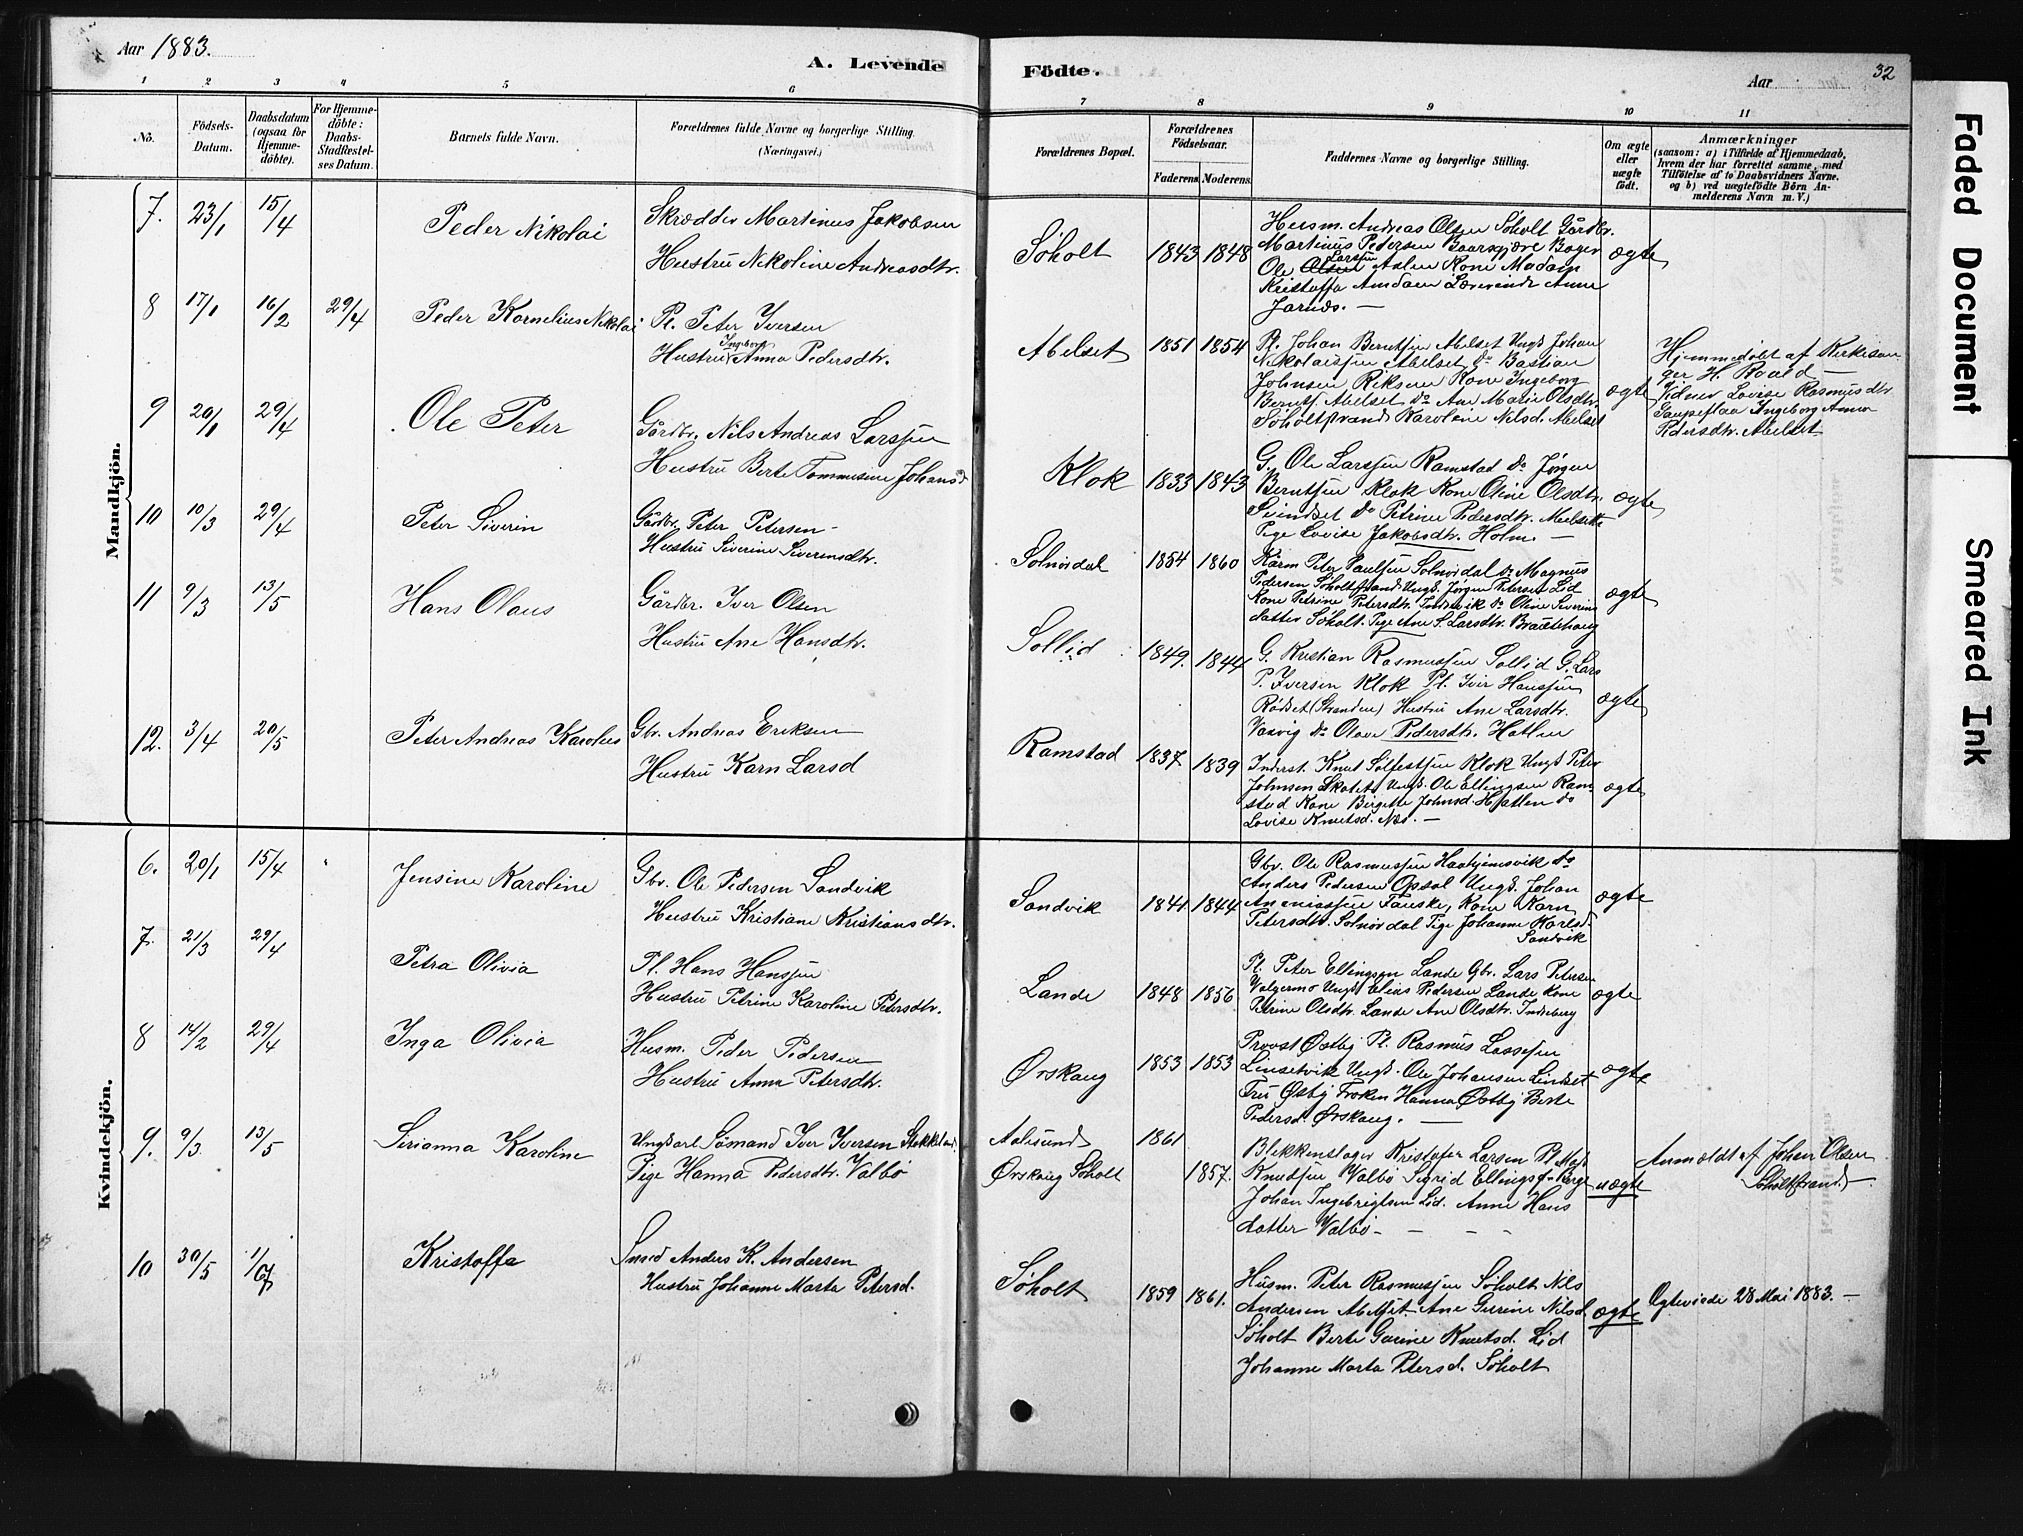 Aar 1883.
A. Levende Födte.
Aar
32
1 2 3 4 5 6 7 8 9 10 11
No.
Födsels-Datum.
Daabsdatum (ogsaa for Hjemmedöbte).
For Hjemmedöbte: Daabs-Stadfestelses Datum.
Barnets fulde Navn.
Forældrenes fulde Navne og borgerlige Stilling. (Næringsvei.)
Forældrenes Bopæl.
Forældrenes Födselsaar.
Faderens.
Moderens.
Faddernes Navne og borgerlige Stilling.
Om ægte eller uægte födt.
Anmærkninger
(saasom: a) i Tilfælde af Hjemmedaab, hvem der har forrettet samme, med Tilföielse af to Daabsvidners Navne, og b) ved uægtefödte Börn Anmelderens Navn m. V.)
Mandkjön.
7. 23/1 15/4 Peder Nikolai
Skrædder Martinus Jakobsen
Hustru Nikoline Andreasdtr.
Søholt 1843 1848
Husm. Andreas Olsen Søholt Gårdbr.
Martinus Pedersen Baarsgjære Bager
Ole Larsen Aslen Kone Madam
Kristoffa Amdam Lærerinde Anne
Jarnes. —
ægte
8 17/1 16/2 29/4 Peder Kornelius Nikolai
Pl. Peter Iversen
Hustru Ingeborg Anna Pedersdtr.
Abelset 1851 1854
Pl. Johan Berntsen Abelset Ungk Johan
Nikolaisen Abelset do Bastian
Johnsen Riksem Kone Ingeborg
Bernts. Abelset do Ane Marie Olsdtr.
Søholtstrand Karoline Nilsd. Abelset
ægte
Hjemmedøbt af Kirkesan
ger H. Roald —
Vidner Lovise Rasmusdtr
Gaupseflaa Ingeborg Anna
Pedersdtr. Abelset
9 20/1 29/4 Ole Peter
Gårdbr. Nils Andreas Larssen
Hustru Berte Tommesine Johansd
Klok 1833 1843
G. Ole Larssen Ramstad do Jørgen
Berntsen Klok Kone Oline Olsdtr.
Svindset do Petrine Pedersdtr.
Pige Lovise Jakobsdtr. Holm. —
ægte
10 10/3 29/4 Peter Siverin
Gårdbr. Peter Petersen
Hustru Siverine Siverinsdtr.
Solnørdal 1854 1860
Kårm Peter Paulsen Solnørdal do Magnus
Pedersen Søholtstrand Ungk. Jørgen Petersen Lid
Kone Petrine Petersdtr. Indrevik do Oline Siverins
datter Søholt. Pige Ane S. Larsdtr. Brautehaug
ægte
11 9/3 13/5 Hans Olaus
Gårdbr. Iver Olsen
Hustru Ane Hansdtr.
Sollid 1849. 1844
G. Kristian Rasmussen Sollid G. Lars
P. Iversen Klok Pl. Iver Hanssen
Rødset (Stranden) Hustru Ane Larsdtr.
Vasvig do Olave Pedersdtr. Hatlen
ægte
12. 3/4 20/5 Peter Andreas Karolus
Gbr. Andreas Eriksen
Hustru Karn Larsd
Ramstad 1837. 1839
Inderst. Knut Sølfestsen Klok Ungk Peter
Johnsen Ungk. Ole Ellingsen Ram
stad Kone Birgitte Johnsd. Hatlen do
Lovise Knutsd. Næs. —
ægte
Kvindekjön.
6. 20/1 15/4 Jensine Karoline
Gbr. Ole Pedersen Sandvik
Hustru Kristiane Kristiansdtr.
Sandvik 1841 1844
Gbr. Ole Rasmussen Haahjemsvik do
Anders Pedersen Opsal Ungk. Johan
Ananiassen Fauske, Kone Karn
Petersdtr. Solnørdal Pige Johanne Karlsd.
Sandvik
ægte
7. 21/3 29/4 Petra Olivia
Pl. Hans Hanssen
Hustru Petrine Karoline Petersdtr.
Lande 1848 1856
Pl. Peter Ellingsen Lande Gbr. Lars Petersen
Valgermo Ungk Elias Pedersen Lande Kone
Petrine Olsdtr. Lande Ane Olsdtr. Indreberg
ægte
8 14/2 29/4 Inga Olivia
Husm. Peder Pedersen
Hustru Anna Petersdtr.
Ørskaug 1853 1853
Provst Østby Pl. Rasmus Lassesen
Linsetvik Ungk. Ole Johansen Lindset
Fru Østby Frøken Hanna Østby Berte
Pedersd. Ørskaug. —
ægte
9. 9/3 13/5 Serianna Karoline
Ungkarl Sømand Iver Iversen Stokkeland
Pige Hanna Pedersdtr. Valbø
Aalesund 1861
Ørskaug Søholt 1857.
Blikkenslager Kristofer Larsen Pl. Mass
Knudsen Valbø Sigrid Ellingsd.
Johan Ingebrigtsen Lid. Anne Hans
datter Valbø — — — —
uægte
Anmeldt af Johan Olsen
Søholtstrand. —
10 30/5 1/7 Kristoffa
Smed Anders K. Andersen
Hustru Johanne Marta Petersd.
Søholt 1859 1861.
Husm. Peter Rasmussen Søholt Nils
Andersen Abelset. Ane Gurine Nilsd
Søholt Berte Gurine Knutsd. Lid
Johanne Marta Petersd. Søholt
ægte
Egteviede 28 Mai 1883. —
Faded Document
Smeared Ink